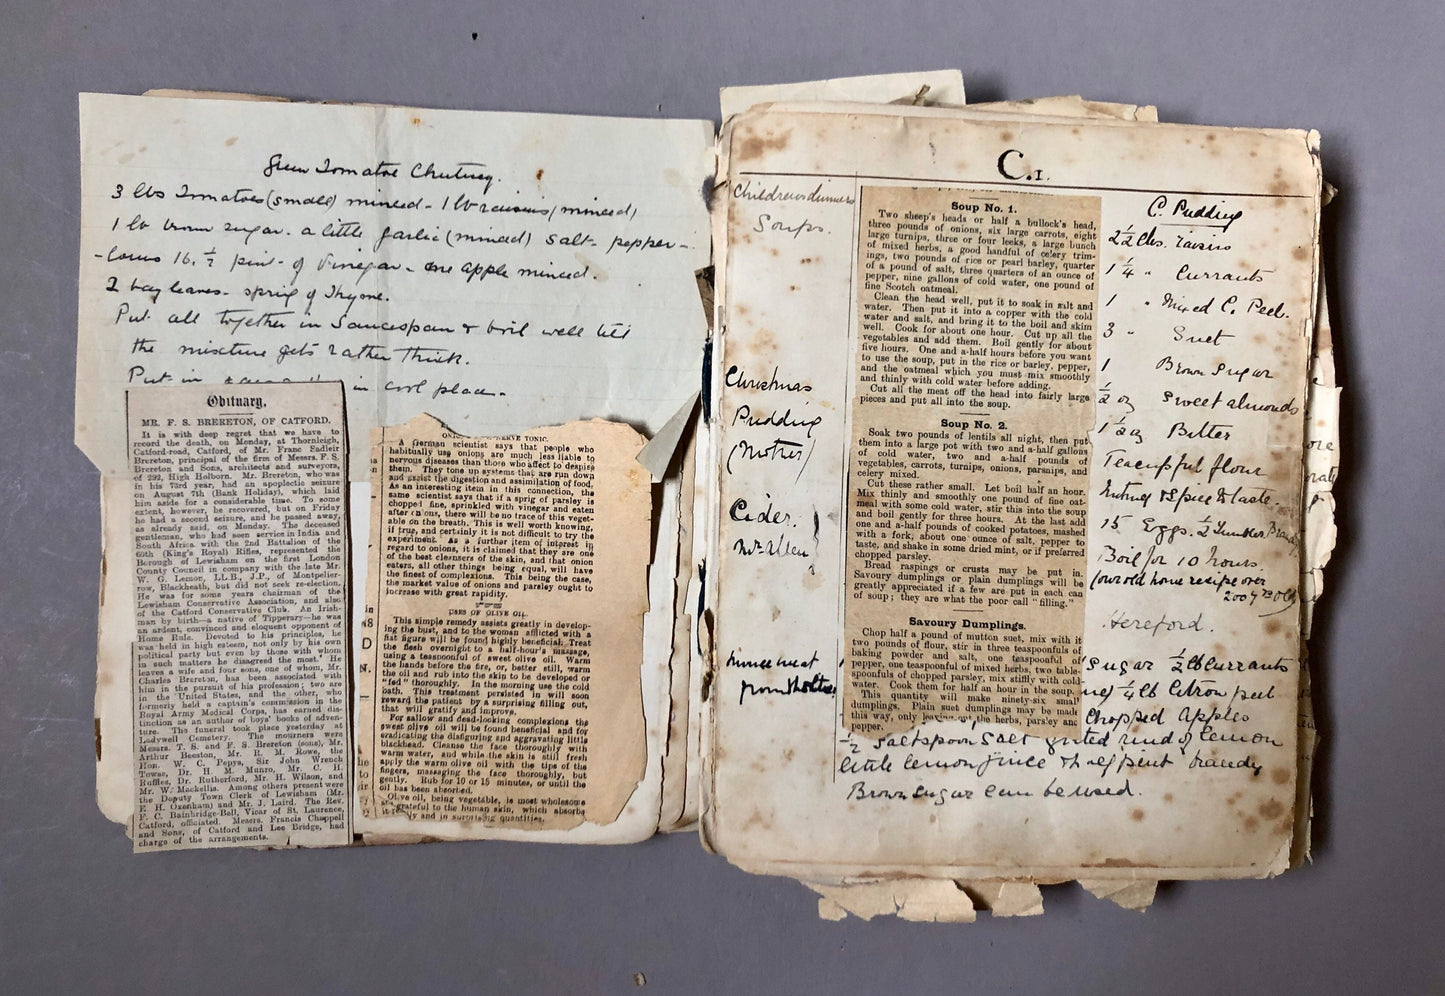 Green Tomatoe Chutney.
3 lbs Tomatoes (small) minced - 1 lb raisins (minced)
1 lb brown sugar. a little garlic (minced) salt - pepper -
16. ½ pint - of Vinegar - one apple minced.
2 bay leaves - sprig of Thyme.
Put all together in Saucespan & boil well till
the mixture gets rather thick.
Put in in cool place -
Obituary.
MR. F. S. BRERETON, OF CATFORD.
It is with deep regret that we have to
record the death, on Monday, at Thornleigh,
Catford-road, Catford, of Mr. Franc Sadleir
Brereton, principal of the firm of Messrs. F. S.
Brereton and Sons, architects and surveyors,
of 292, High Holborn. Mr. Brereton, who was
in his 73rd year, had an apoplectic seizure
on August 7th (Bank Holiday), which laid
him aside for a considerable time. To some
extent, however, he recovered, but on Friday
he had a second seizure, and he passed away,
as already said, on Monday. The deceased
gentleman, who had seen service in India and
South Africa with the 2nd Battalion of the
60th (King's Royal) Rifles, represented the
Borough of Lewisham on the first London
County Council in company with the late Mr.
W. G. Lemon, LL.B., J.P., of Montpelier-
row, Blackheath, but did not seek re-election.
He was for some years chairman of the
Lewisham Conservative Association, and also
of the Catford Conservative Club. An Irish-
man by birth—a native of Tipperary—he was
an ardent, convinced and eloquent opponent of
Home Rule. Devoted to his principles, he
was held in high esteem, not only by his own
political party but even by those with whom
in such matters he disagreed the most. He
leaves a wife and four sons, one of whom, Mr.
Charles Brereton, has been associated with
him in the pursuit of his profession; two are
in the United States, and the other, who
formerly held a captain's commission in the
Royal Army Medical Corps, has earned dis-
tinction as an author of boys' books of adven-
ture. The funeral took place yesterday at
Ladywell Cemetery. The mourners were
Messrs. T. S. and F. S. Brereton (sons), Mr.
Arthur Beeston, Mr. R. M. Rowe, the
Hon. W. C. Pepys, Sir John Wrench
Towse, Dr. H. M. Munro, Mr. C. H.
Ruffles, Dr. Rutherford, Mr. H. Wilson, and
Mr. W. Mackellis. Among others present were
the Deputy Town Clerk of Lewisham (Mr.
E. H. Oxenham) and Mr. J. Laird. The Rev.
F. C. Bainbridge-Bell, Vicar of St. Laurence,
Catford, officiated. Messrs. Francis Chappell
and Sons, of Catford and Lee Bridge, had
charge of the arrangements.
NERVE TONIC.
A German scientist says that people who
habitually use onions are much less liable to
nervous diseases than those who affect to despise
them. They tone up systems that are run down
and assist the digestion and assimilation of food.
As an interesting item in this connection, the
same scientist says that if a sprig of parsley is
chopped fine, sprinkled with vinegar and eaten
after onions, there will be no trace of this veget-
able on the breath. This is well worth knowing,
if true, and certainly it is not difficult to try the
experiment. As a further item of interest in
regard to onions, it is claimed that they are one
of the best cleansers of the skin, and that onion
eaters, all other things being equal, will have
the finest of complexions. This being the case,
the market value of onions and parsley ought to
increase with great rapidity.
USES OF OLIVE OIL.
This simple remedy assists greatly in develop-
ing the bust, and to the woman afflicted with a
flat figure will be found highly beneficial. Treat
the flesh overnight to a half-hour's massage,
using a teaspoonful of sweet olive oil. Warm
the hands before the fire, or, better still, warm
the oil and rub into the skin to be developed or
"fed" thoroughly. In the morning use the cold
bath. This treatment persisted in will soon
reward the patient by a surprising filling out,
that will gratify and improve.
For sallow and dead-looking complexions the
sweet olive oil will be found beneficial and for
eradicating the disfiguring and aggravating little
blackhead. Cleanse the face thoroughly with
warm water, and while the skin is still fresh
apply the warm olive oil with the tips of the
fingers, massaging the face thoroughly, but
gently. Rub for 10 or 15 minutes, or until the
oil has been absorbed.
Olive oil, being vegetable, is most wholesome
and grateful to the human skin, which absorbs
it really and in surprising quantities.
C.1.
Childrens dinners
Soups.
Christmas
Pudding
(Mother)
Cider.
Mr Allen
Mincemeat
from
Soup No. 1.
Two sheep's heads or half a bullock's head,
three pounds of onions, six large carrots, eight
large turnips, three or four leeks, a large bunch
of mixed herbs, a good handful of celery trim-
mings, two pounds of rice or pearl barley, quarter
of a pound of salt, three quarters of an ounce of
pepper, nine gallons of cold water, one pound of
fine Scotch oatmeal.
Clean the head well, put it to soak in salt and
water. Then put it into a copper with the cold
water and salt, and bring it to the boil and skim
well. Cook for about one hour. Cut up all the
vegetables and add them. Boil gently for about
five hours. One and a-half hours before you want
to use the soup, put in the rice or barley, pepper,
and the oatmeal which you must mix smoothly
and thinly with cold water before adding.
Cut all the meat off the head into fairly large
pieces and put all into the soup.
Soup No. 2.
Soak two pounds of lentils all night, then put
them into a large pot with two and a-half gallons
of cold water, two and a-half pounds of
vegetables, carrots, turnips, onions, parsnips, and
celery mixed.
Cut these rather small. Let boil half an hour.
Mix thinly and smoothly one pound of fine oat-
meal with some cold water, stir this into the soup
and boil gently for three hours. At the last add
one and a-half pounds of cooked potatoes, mashed
with a fork, about one ounce of salt, pepper to
taste, and shake in some dried mint, or if preferred
chopped parsley.
Bread raspings or crusts may be put in.
Savoury dumplings or plain dumplings will be
greatly appreciated if a few are put in each can
of soup; they are what the poor call "filling."
Savoury Dumplings.
Chop half a pound of mutton suet, mix with it
two pounds of flour, stir in three teaspoonfuls of
baking powder and salt, one teaspoonful of
pepper, one teaspoonful of mixed herbs, two table-
spoonfuls of chopped parsley, mix stiffly with cold
water. Cook them for half an hour in the soup.
This quantity will make ninety-six small
dumplings. Plain suet dumplings may be made
this way, only leaving out the herbs, parsley and
pepper.
C. Pudding
2½ lbs. raisins
1¼ " Currants
1 " Mixed C. Peel.
3 " Suet
1 Brown Sugar
½ oz Sweet almonds
1½ oz Bitter
Teacupful flour
Nutmeg & Spice to taste -
15 Eggs. ½ Tumbler Brandy
Boil for 10 hours.
(our old home recipe over
200 y^rs old)
Hereford.
Sugar ½ lb Currants
¼ lb Citron peel
Chopped Apples
½ saltspoon salt grated rind of lemon
little lemon juice & half pint brandy
Brown sugar can be used.